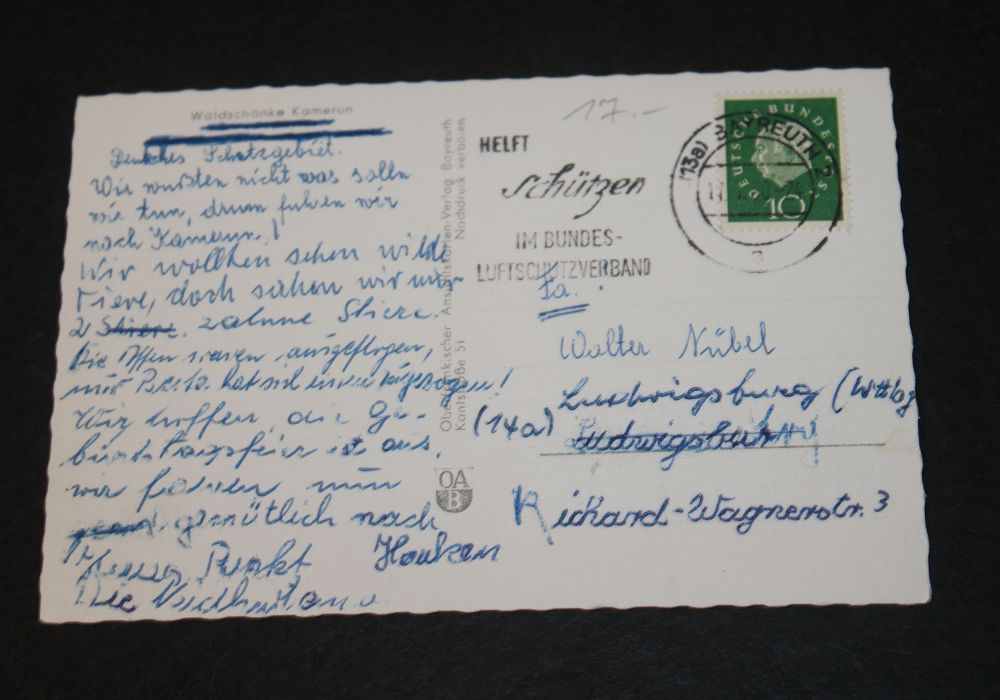 Waldschänke Kamerun
Deutsches Schutzgebiet.
Wir wußten nicht was solln
wir tun, drum fuhren wir
nach Kamerun!
Wir wollten sehen wilde
Tiere, doch sahen wir nur
2 Stiere. zahme Stiere.
Die Affen waren ausgeflogen,
nur hat sich
Wir hoffen, die Ge-
burtstagsfeier ist aus,
wir fahren nun
gemütlich nach
Hausen
Punkt
Die
Oberfränkischer Ansichtskarten-Verlag Bayreuth
Kantstraße 51 Nachdruck verboten
OA
B
17.-
HELFT
Schützen
IM BUNDES-
LUFTSCHUTZVERBAND
(13a) BAYREUTH 2
a
DEUTSCHE BUNDESPOST
10
Fa.
Walter Nübel
Ludwigsburg (Wttbg
(14a) Ludwigsburg
Richard-Wagnerstr. 3